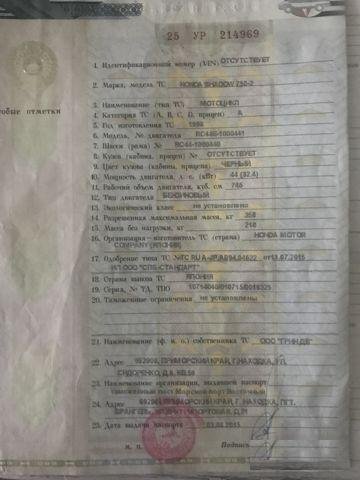 25 УР 214969
1. Идентификационный номер (VIN) ОТСУТСТВУЕТ
2. Марка, модель ТС HONDA SHADOW 750-2
3. Наименование (тип ТС) МОТОЦИКЛ
собые отметки
4. Категория ТС (A, B, C, D, прицеп) А
5. Год изготовления ТС 1998
6. Модель, № двигателя RC44E-1000441
7. Шасси (рама) № RC44-1000440
8. Кузов (кабина, прицеп) № ОТСУТСТВУЕТ
9. Цвет кузова (кабины, прицепа) ЧЕРНЫЙ
10. Мощность двигателя, л. с. (кВт) 44 (32.4)
11. Рабочий объем двигателя, куб. см 745
12. Тип двигателя БЕНЗИНОВЫЙ
13. Экологический класс не установлено
14. Разрешенная максимальная масса, кг 358
15. Масса без нагрузки, кг 210
16. Организация-изготовитель ТС (страна) HONDA MOTOR
COMPANY (ЯПОНИЯ)
17. Одобрение типа ТС от 13.07.2015
ИП ООО "СПБ-СТАНДАРТ"
18. Страна вывоза ТС ЯПОНИЯ
19. Серия, № ТД, ТПО
20. Таможенные ограничения не установлены
21. Наименование (ф. и. о.) собственника ТС ООО
22. Адрес ПРИМОРСКИЙ КРАЙ, Г. НАХОДКА, УЛ.
СИДОРЕНКО,
23. Наименование организации, выдавшей паспорт
таможенный пост Морской порт Восточный
24. Адрес ПРИМОРСКИЙ КРАЙ, Г. НАХОДКА, ПГТ.
ВРАНГЕЛЬ,
25. Дата выдачи паспорта 2015
М. П. Подпись